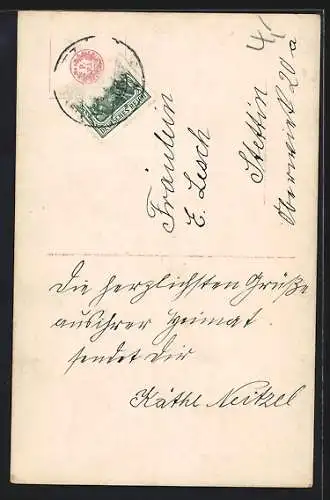 Fräulein
E. Lesch
Stettin
Oberwiek 20a
Die herzlichsten Grüße
aus ihrer Heimat.
sendet Dir
Käthe Neitzel
DEUTSCHES REICH